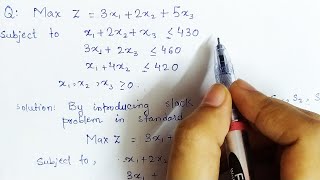 Q: Max Z = 3x₁ + 2x₂ + 5x₃
Subject to x₁ + 2x₂ + x₃ ≤ 430
3x₂ + 2x₃ ≤ 460
x₁ + 4x₂ ≤ 420
x₁, x₂, x₃ ≥ 0.
Solution: By introducing slack S₂
problem in standard
Max Z = 3x₁ +
Subject to, x₁ + 2x₂
3x₁ +